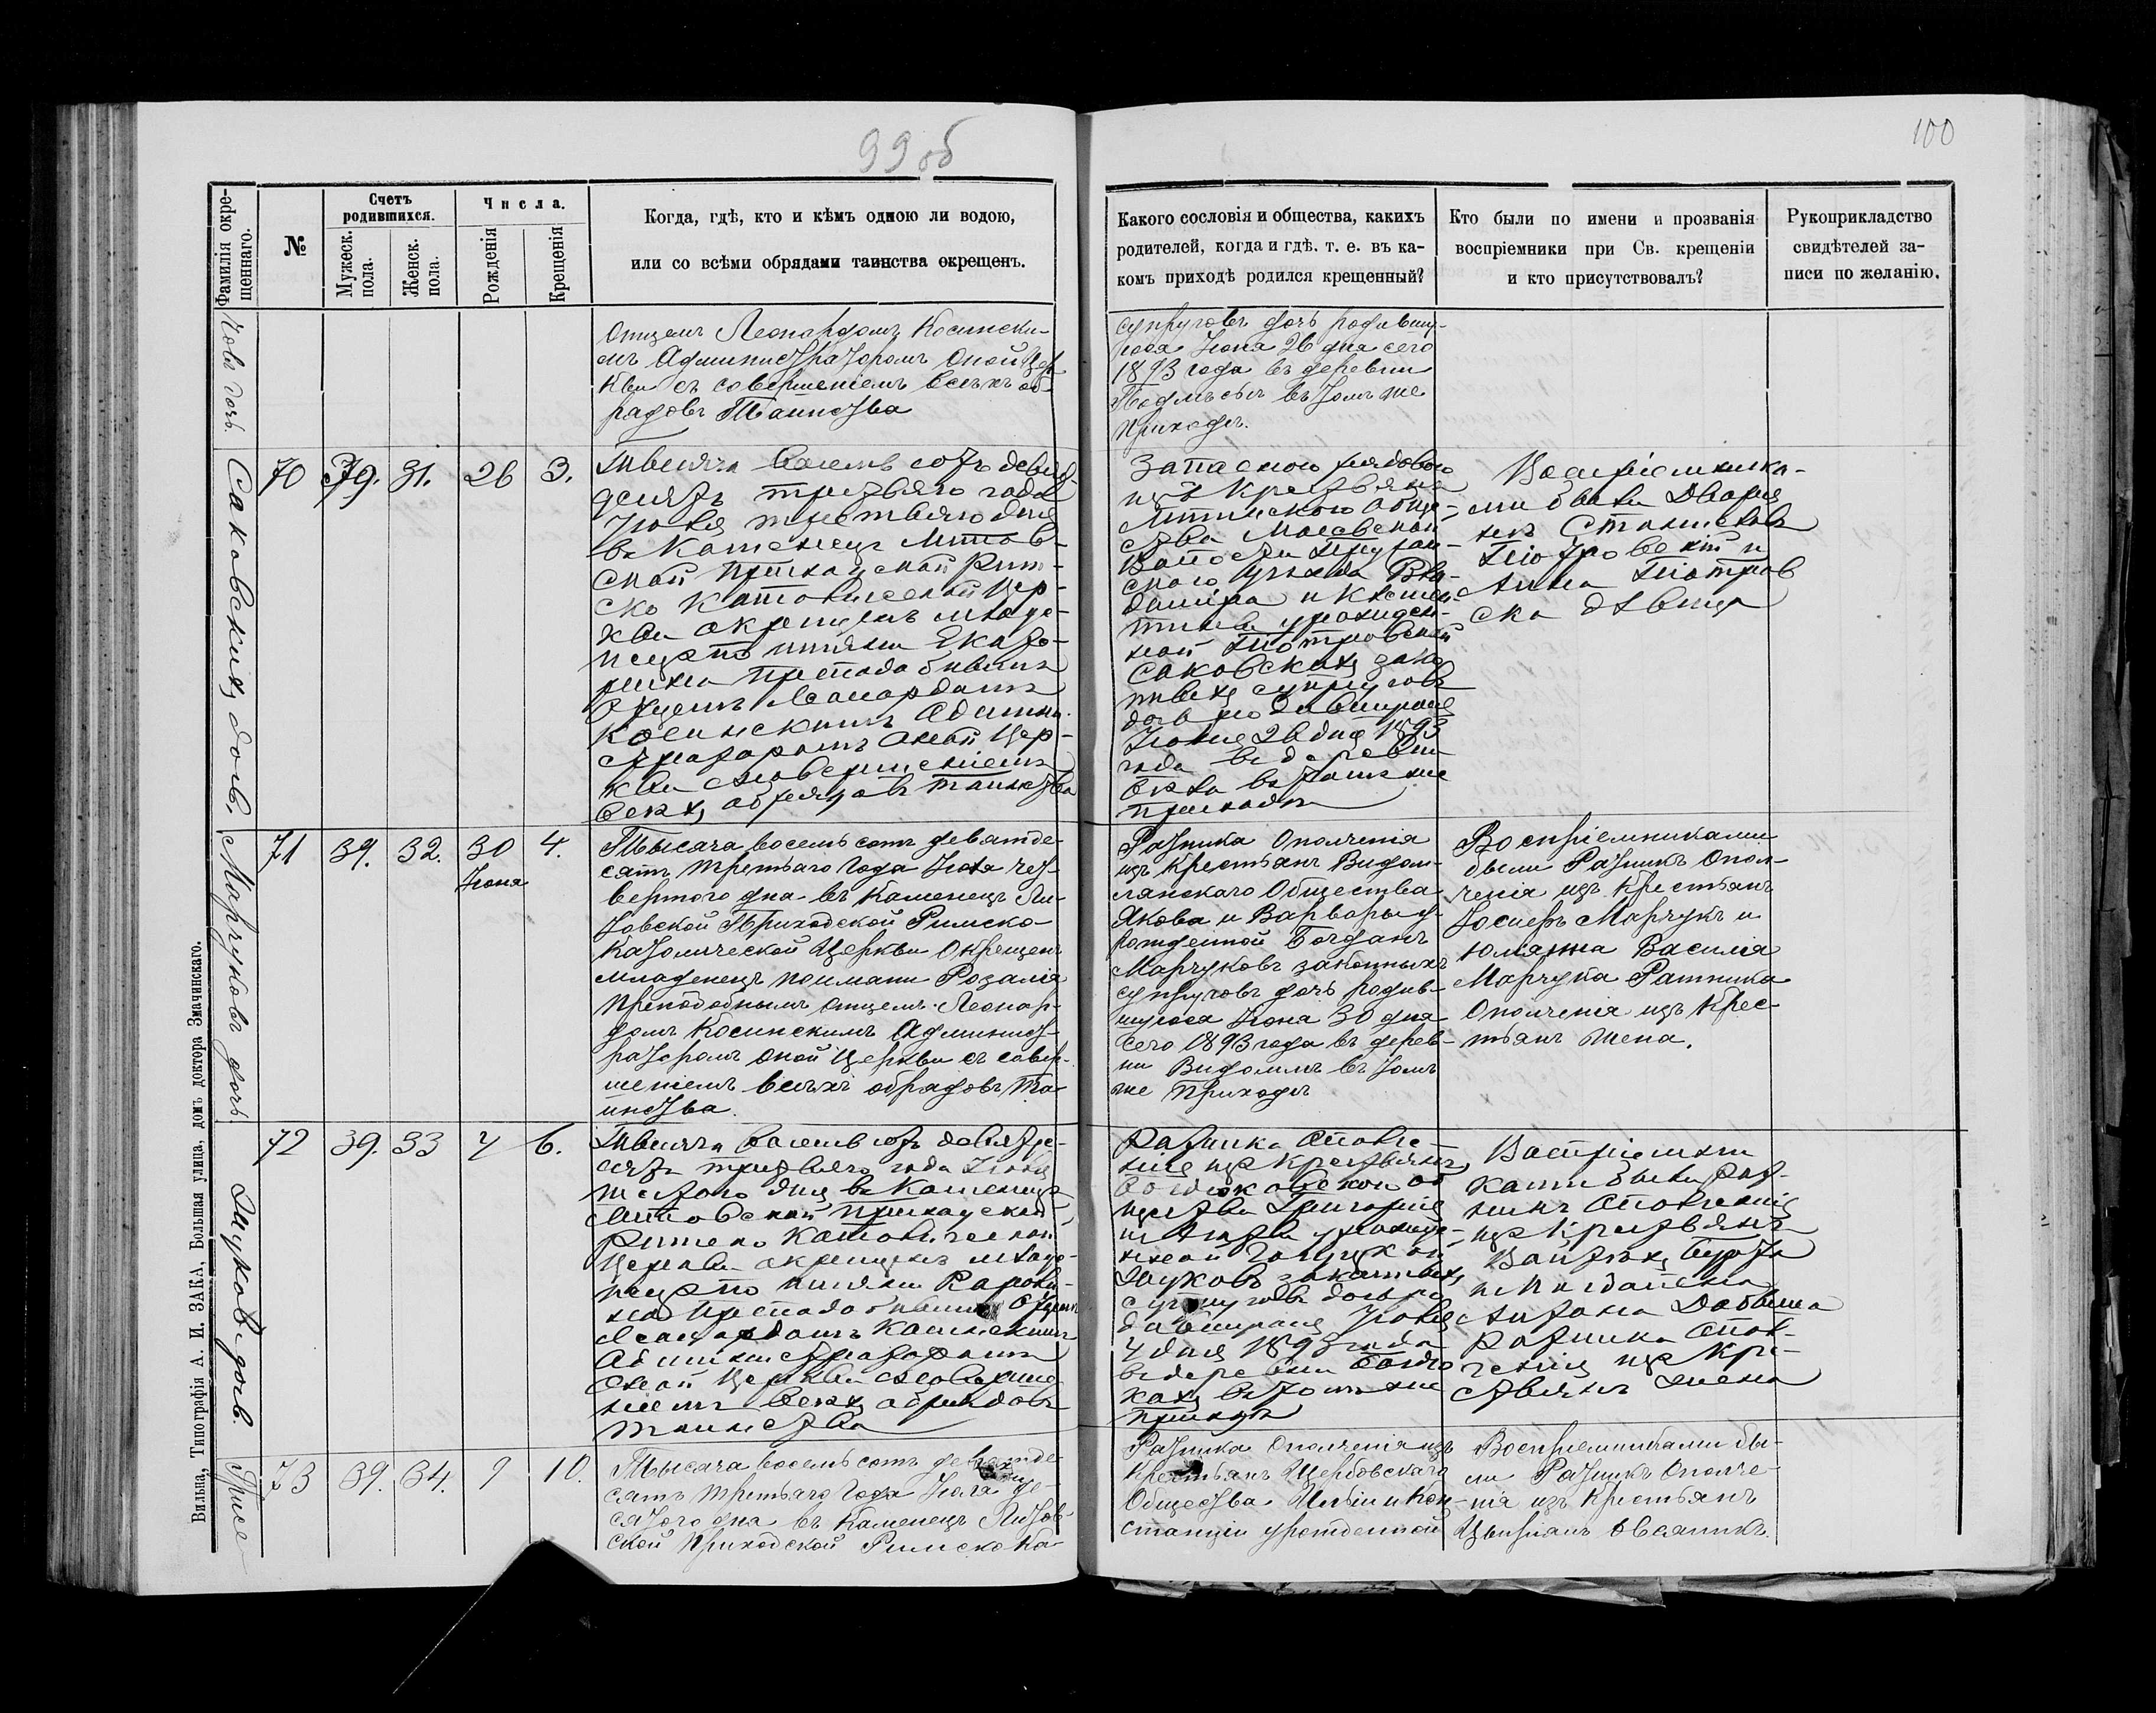 99 об
100
Фамилія окре-
щеннаго.
№
Счетъ
родившихся.
Мужеск.
пола.
Женск.
пола.
Числа.
Рожденія
Крещенія
Когда, гдѣ, кто и кѣмъ одною ли водою,
или со всѣми обрядами таинства окрещенъ.
Какого сословія и общества, какихъ
родителей, когда и гдѣ. т. е. въ ка-
комъ приходѣ родился крещенный?
Кто были по имени и прозванія
воспріемники при Св. крещеніи
и кто присутствовалъ?
Рукоприкладство
свидѣтелей за-
писи по желанію.
дочь.
Отцемъ Леонардомъ Косински-
мъ Администраторомъ оной Цер
кви съ совершеніемъ всѣхъ об-
рядовъ Таинства
супруговъ дочь родившу-
юся Іюня 26 дня сего
1893 года въ деревни
въ томъ же
приходѣ.
Саковскихъ дочь.
70
39.
31.
26
3.
Тысяча восемь сотъ девят-
десятъ третьяго года
Іюля третьяго дня
въ Каменецъ Литов-
ской Приходской Рим-
ско Католической Цер-
кви окрещенъ младе-
нецъ по имяни Екате-
рина Преподобнымъ
Отцемъ Леонардомъ
Косинскимъ Админи-
страторомъ оной Цер-
кви съ совершеніемъ
всехъ обрядовъ таинства
Запасного рядового
изъ Крестьянъ
обще-
ства
Волости
ского уѣзда Вла-
диміра и
урожден-
ной Піотровской
Саковскихъ зако-
нныхъ супруговъ
дочь родившуюся
Іюня 26 дня 1893
года въ деревни
въ томъ же
приходѣ
Воспріемника-
ми были Дворя-
нъ Станиславъ
Піотровскій и
Анна Піотров
ска дѣвица
Марчуковъ дочь.
71
39.
32.
30
Іюня
4.
Тысяча восемь сотъ девятде-
сятъ третьяго года Іюля чет-
вертого дня въ Каменецъ Ли-
товской Приходской Римско
Католической Церкви окрещенъ
младенецъ по имяни Розалія
Преподобнымъ Отцемъ Леонар-
домъ Косинскимъ Админист-
раторомъ оной Церкви съ совер-
шеніемъ всѣхъ обрядовъ Та-
инства.
Ратника Ополченія
изъ Крестьянъ Видом-
лянскаго Общества
Якова и Варвары у-
рожденной Богданъ
Марчуковъ законныхъ
супруговъ дочь родив-
шуюся Іюня 30 дня
сего 1893 года въ дерев-
ни Видомлѣ въ томъ
же Приходѣ
Воспріемниками
были Ратникъ Опол-
ченія изъ Крестьянъ
Іосифъ Марчукъ и
Юліанна Василія
Марчука Ратника
Ополченія изъ Крес-
тьянъ жена.
дочь.
72
39.
33
4
6.
Тысяча восемь сотъ девятде-
сятъ третьяго года Іюля
шестого дня въ Каменецъ
Литовской Приходской
Римско Католической
Церкви окрещенъ младе-
нецъ по имяни Кароли-
на Преподобнымъ Отцем
Леонардомъ Косинскимъ
Администраторомъ
оной Церкви съ соверше-
ніемъ всехъ обрядовъ
таинства
Ратника Ополче-
нія изъ Крестьянъ
об
щества Григорія
и урожде-
нной
законныхъ
супруговъ дочь ро
дившуюся Іюля
4 дня 1893 года
въ деревни
въ томъ же
приходѣ
Воспріемни
ками были Рат-
никъ Ополченія
изъ Крестьянъ
и Магдалена
Антона
Ратника Опол-
ченія изъ Кре-
стьянъ жена
73
39.
34.
9
10.
Тысяча восемь сотъ девятде-
сятъ третьяго года Іюля де-
сятого дня въ Каменецъ Литов-
ской Приходской Римско Ка-
Ратника Ополченія изъ
Крестьянъ Щербовскаго
Общества и Кон-
станціи урожденной
Воспріемниками бы-
ли Ратникъ Ополче-
нія изъ Крестьянъ
Вильна, Типографія А. И. ЗАКА, Большая улица, домъ доктора Змачинскаго.